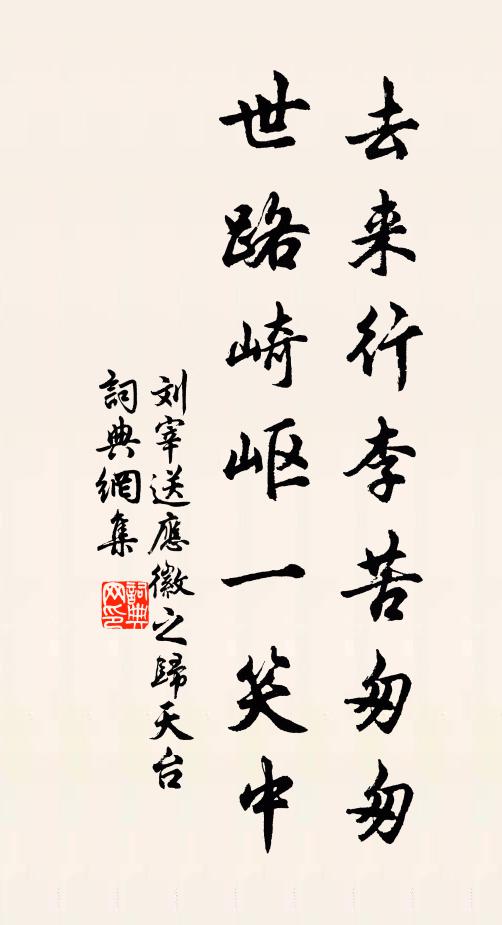 去来行李苦匆匆
世路崎岖一笑中
刘宰送應徽之歸天台
詞典網集
詞典网印